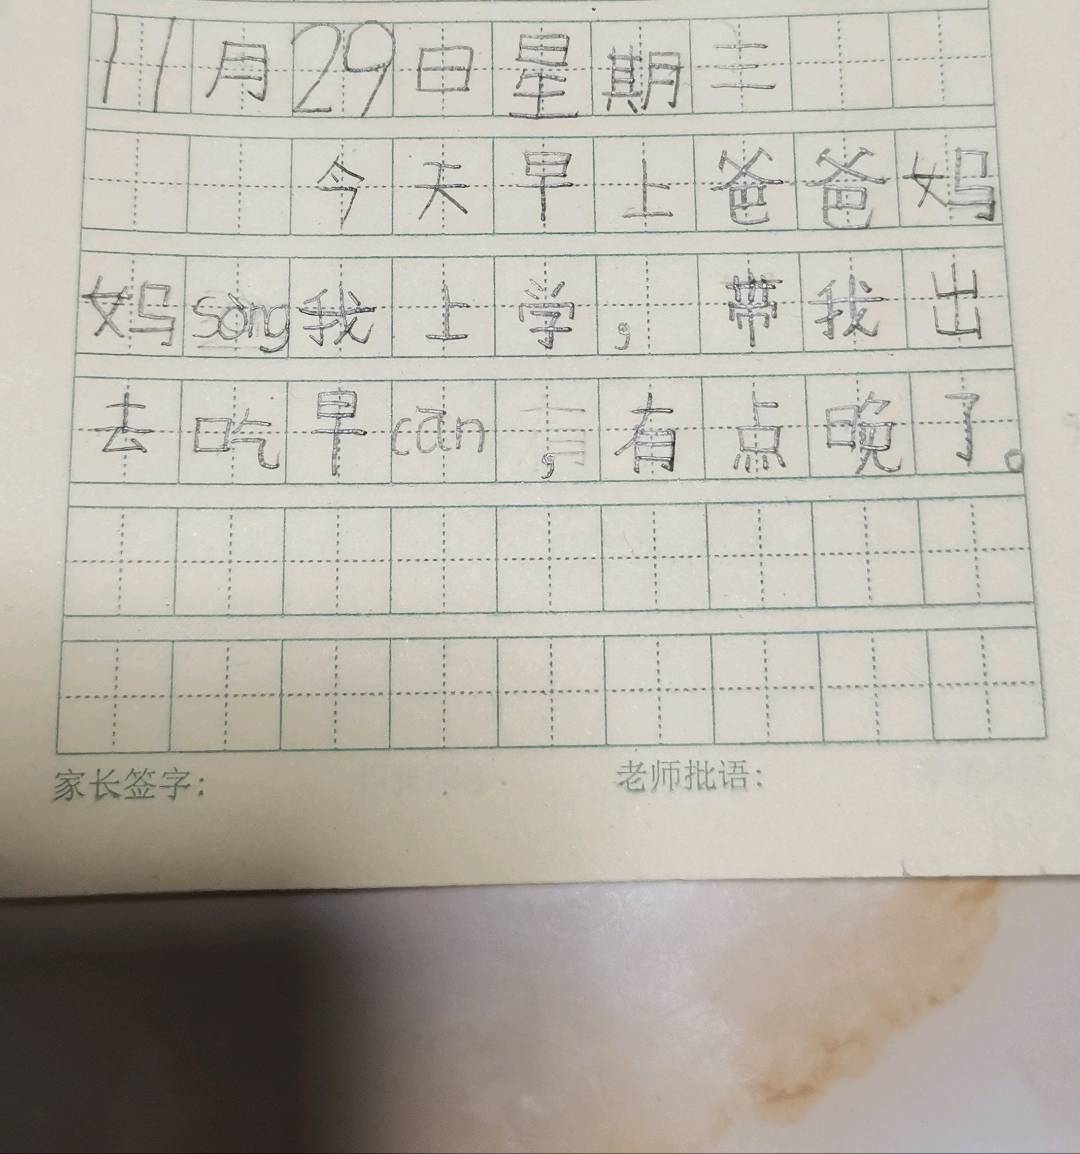 11月29日星期三
今天早上爸爸妈
妈sòng我上学，带我出
去吃早cān，有点晚了。
家长签字： 老师批语：